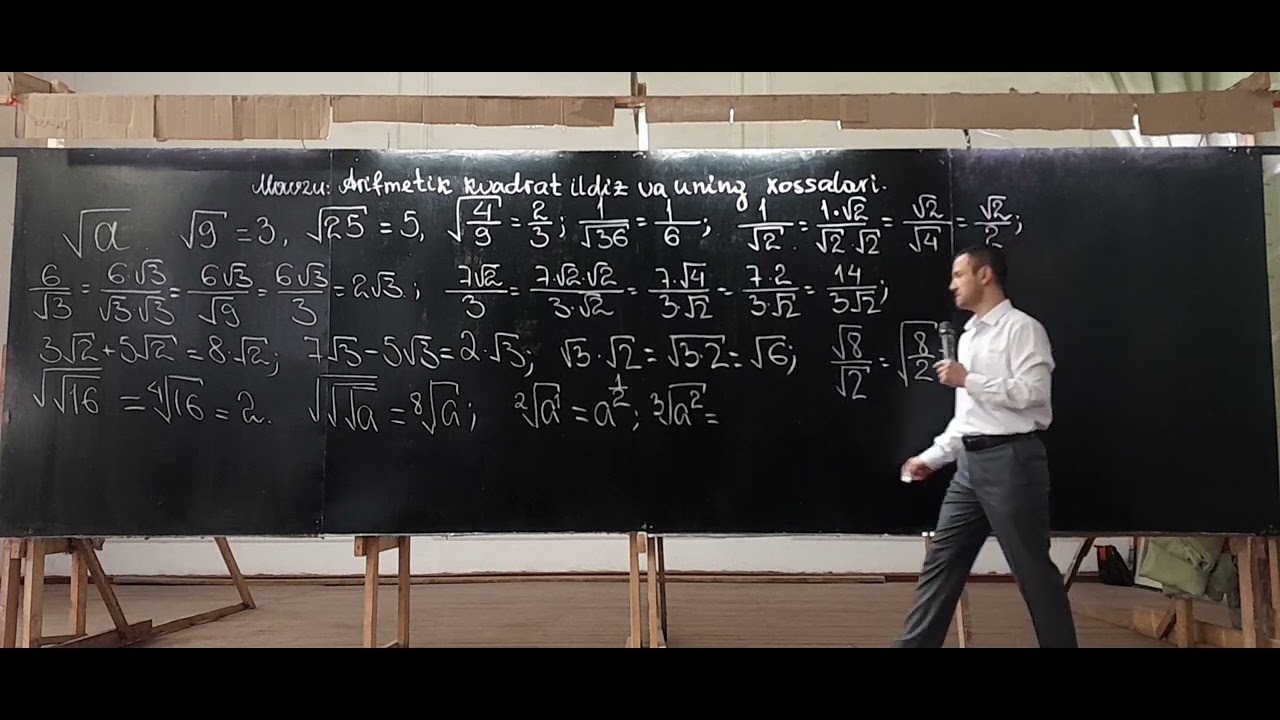 Mavzu: Arifmetik kvadrat ildiz va uning xossalari.
√a. √9 = 3, √25 = 5, √(4/9) = 2/3; 1/√36 = 1/6; 1/√2 = 1·√2/√2·√2 = √2/√4 = √2/2;
6/√3 = 6·√3/√3·√3 = 6√3/√9 = 6√3/3 = 2√3.; 7√2/3 = 7·√2·√2/3·√2 = 7·√4/3·√2 = 7·2/3·√2 = 14/3√2;
3√2 + 5√2 = 8·√2; 7√3 - 5√3 = 2·√3; √3·√2 = √3·2 = √6; √8/√2 = √(8/2)
√√16 = ⁴√16 = 2. √√√a = ⁸√a; ²√a¹ = a^(1/2); ³√a² =